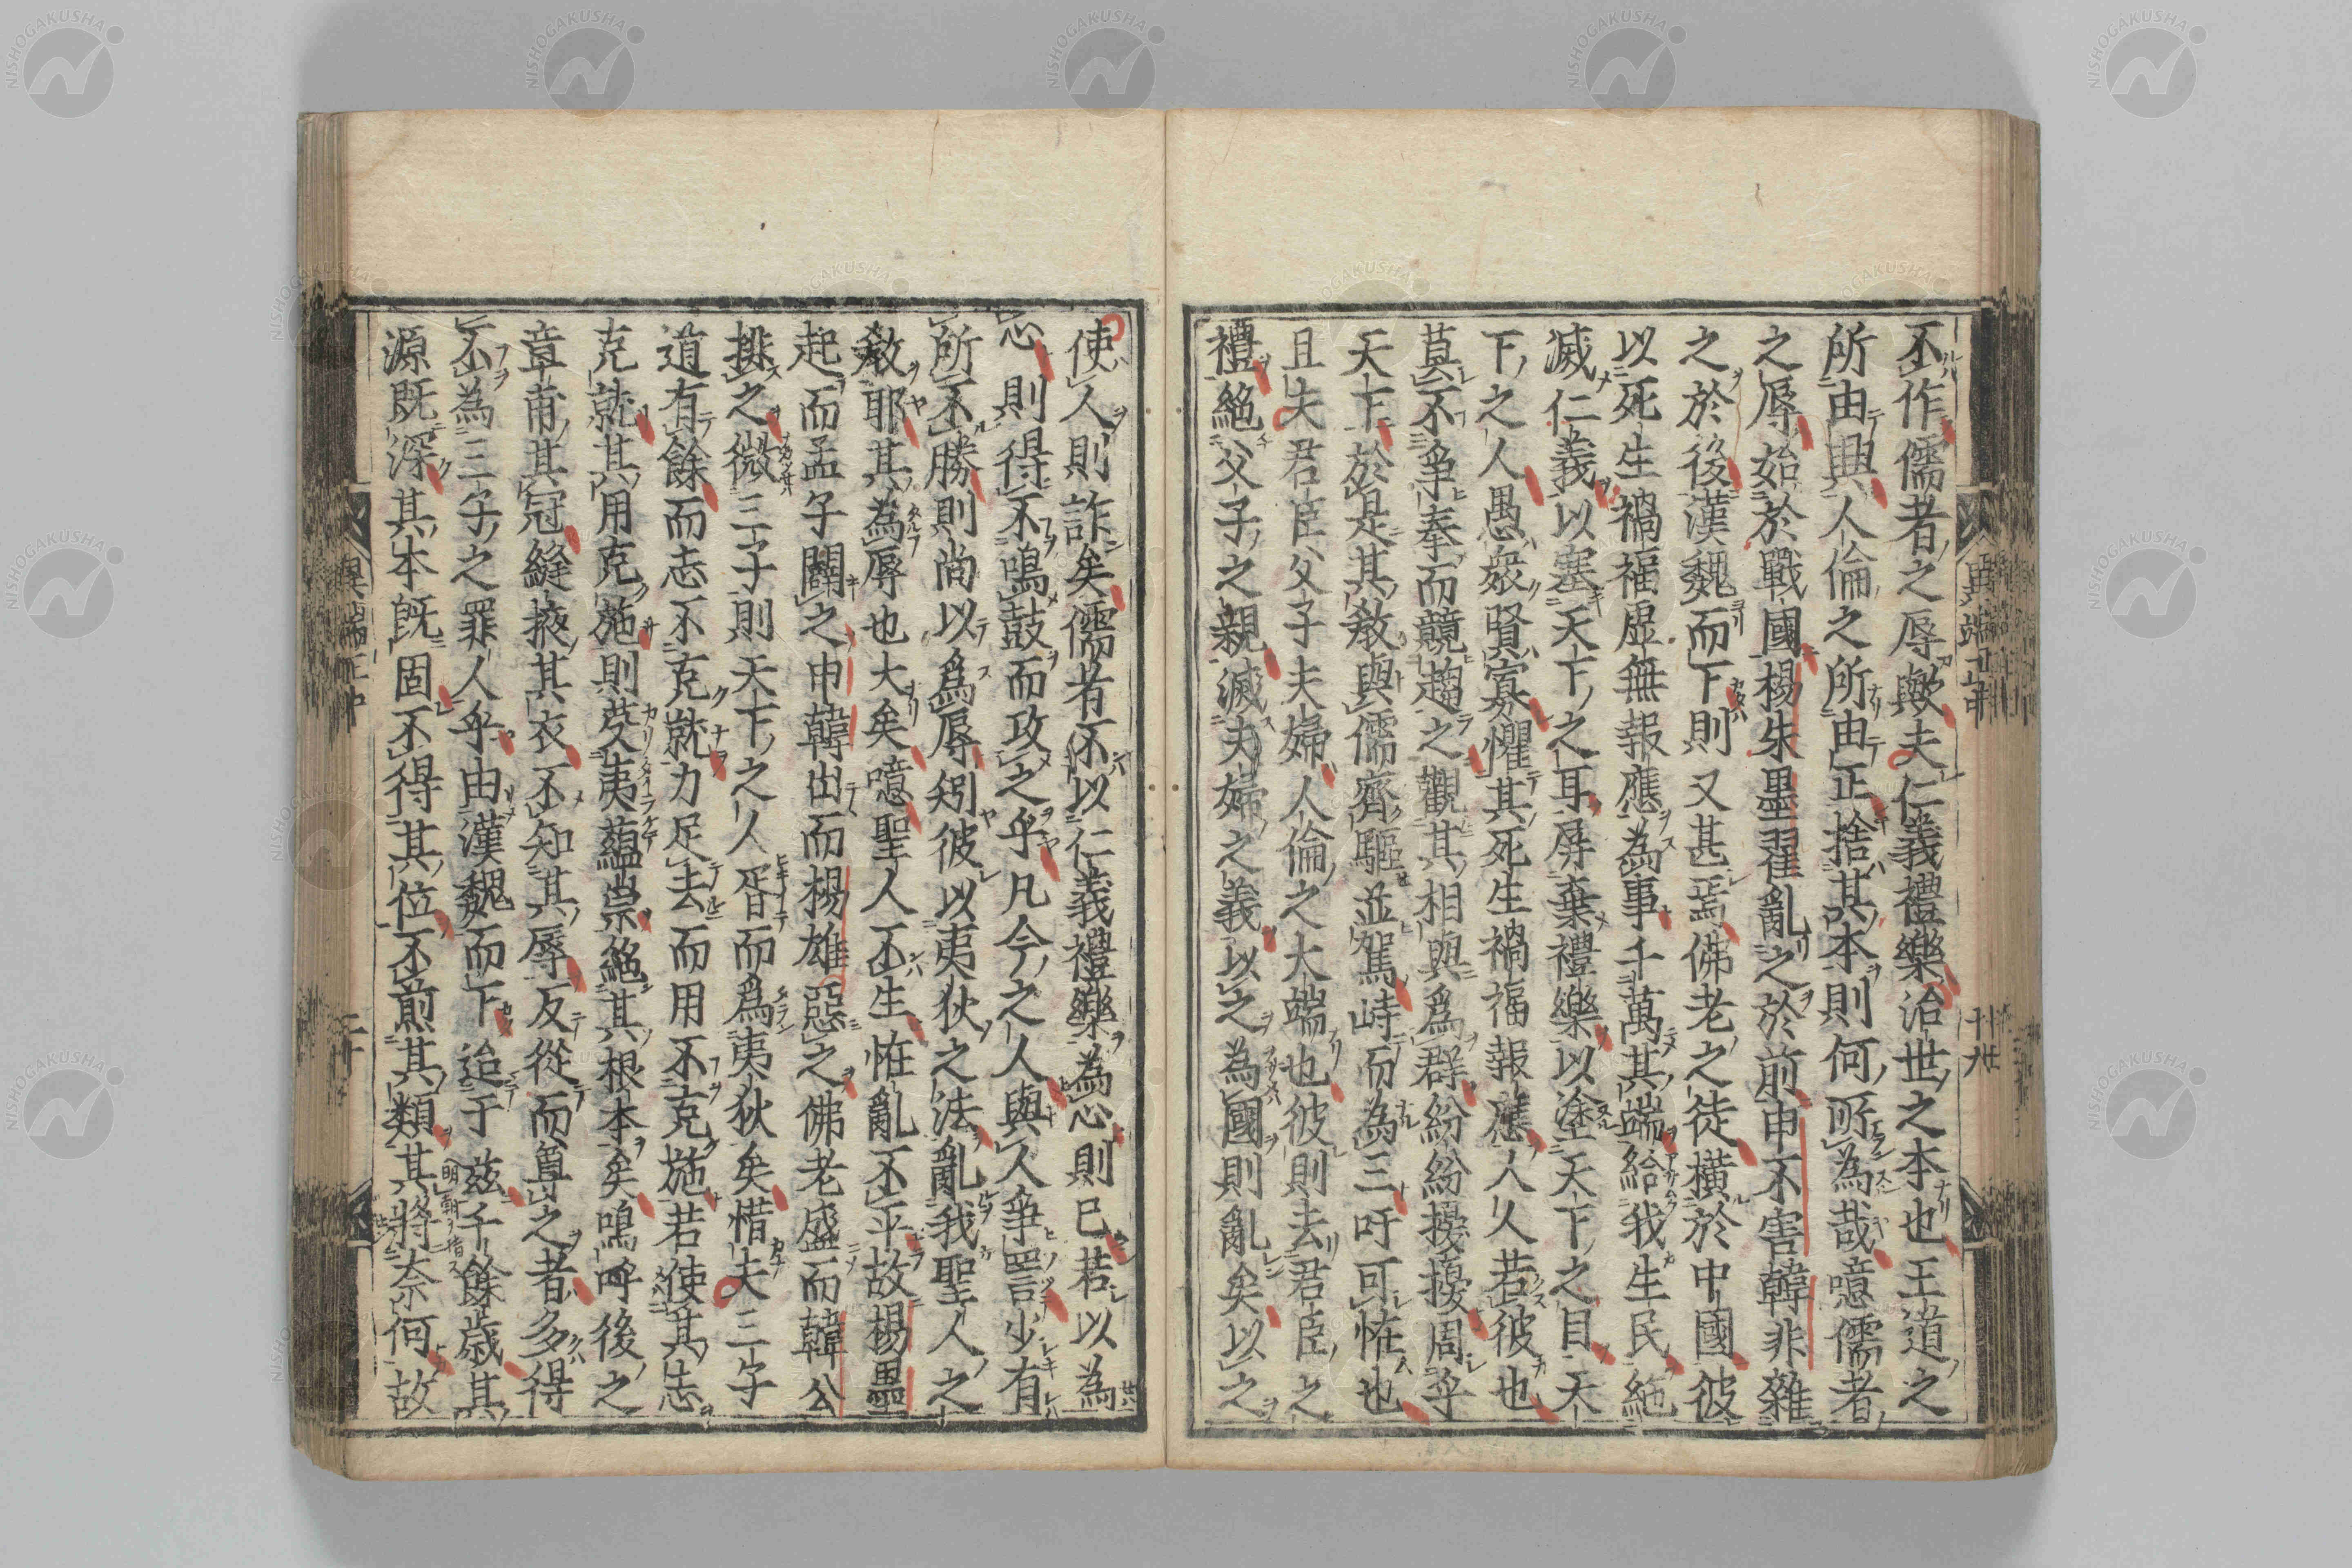 不作儒者之辱歟夫仁義禮樂治世之本也王道之
所由興人倫之所由正捨其本則何所為哉噫儒者
之辱始於戰國楊朱墨翟亂之於前申不害韓非雜
之於後漢魏而下則又甚焉佛老之徒橫於中國彼
以死生禍福虛無報應為事千萬其端給我生民絕
滅仁義以塞天下之耳屏棄禮樂以塗天下之目天
下之人愚衆賢寡懼其死生禍福報應人人若彼也
莫不爭奉而競趨之觀其相與爲群紛紛擾擾周乎
天下於是其教與儒齊驅並駕峙而為三吁可恠也
且夫君臣父子夫婦人倫之大端也彼則去君臣之
禮絕父子之親滅夫婦之義以之為國則亂矣以之
異端正
使人則詐矣儒者不以仁義禮樂為心則已若以為
心則得不鳴鼓而攻之乎凡今之人與人爭詈少有
所不勝則尚以爲辱矧彼以夷狄之法亂我聖人之
教耶其為辱也大矣噫聖人不生恠亂不平故楊墨
起而孟子闢之申韓出而楊雄惡之佛老盛而韓公
排之微三子則天下之人胥而爲夷狄矣惜夫三子
道有餘而志不克就力足去而用不克施若使其志
克就其用克施則芟夷蘊崇絕其根本矣嗚呼後之
章甫其冠縫掖其衣不知其辱反從而尊之者多得
不為三子之罪人乎由漢魏而下迨于茲千餘歲其
源既深其本既固不得其位不煎其類其將奈何故
異端正